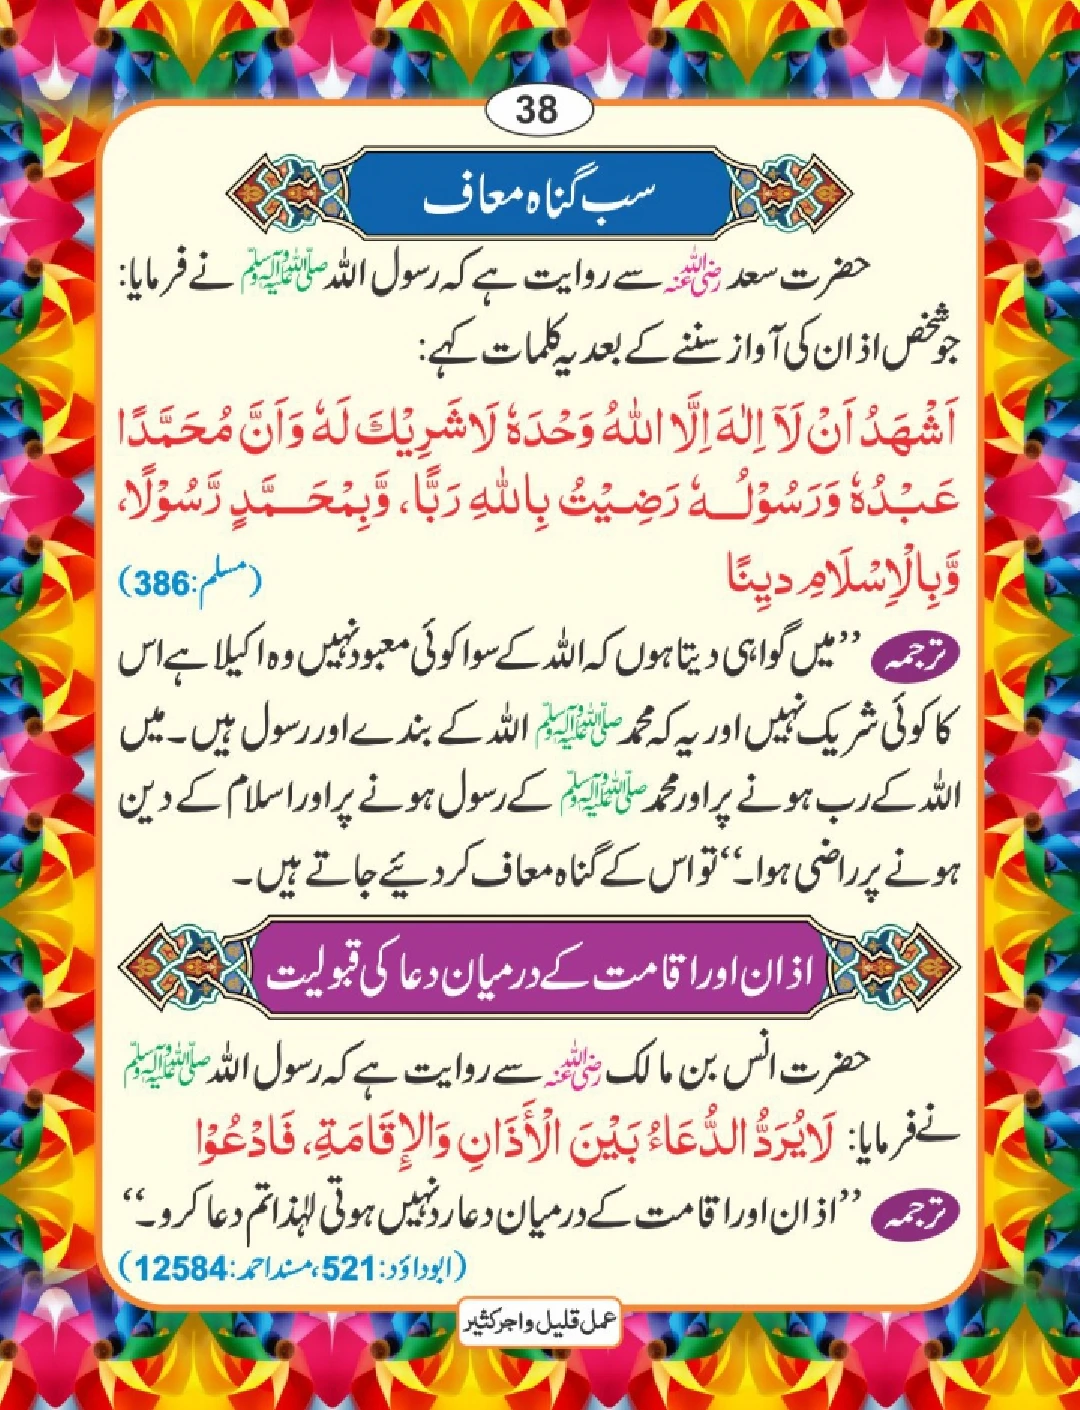 38
سب گناہ معاف
حضرت سعد رضی اللہ عنہ سے روایت ہے کہ رسول اللہ صلی اللہ علیہ وآلہ وسلم نے فرمایا:
جو شخص اذان کی آواز سننے کے بعد یہ کلمات کہے:
اَشْهَدُ اَنْ لَآ اِلٰهَ اِلَّا اللهُ وَحْدَهٗ لَا شَرِيْكَ لَهٗ وَاَنَّ مُحَمَّدًا
عَبْدُهٗ وَرَسُوْلُهٗ رَضِيْتُ بِاللهِ رَبًّا، وَّبِمُحَمَّدٍ رَّسُوْلًا،
وَّبِالْاِسْلَامِ دِيْنًا (مسلم:386)
ترجمہ ’’میں گواہی دیتا ہوں کہ اللہ کے سوا کوئی معبود نہیں وہ اکیلا ہے اس
کا کوئی شریک نہیں اور یہ کہ محمد صلی اللہ علیہ وآلہ وسلم اللہ کے بندے اور رسول ہیں۔ میں
اللہ کے رب ہونے پر اور محمد صلی اللہ علیہ وآلہ وسلم کے رسول ہونے پر اور اسلام کے دین
ہونے پر راضی ہوا۔‘‘ تو اس کے گناہ معاف کر دئیے جاتے ہیں۔
اذان اور اقامت کے درمیان دعا کی قبولیت
حضرت انس بن مالک رضی اللہ عنہ سے روایت ہے کہ رسول اللہ صلی اللہ علیہ وآلہ وسلم
نے فرمایا: لَا يُرَدُّ الدُّعَاءُ بَيْنَ الْأَذَانِ وَالإِقَامَةِ، فَادْعُوْا
ترجمہ ’’اذان اور اقامت کے درمیان دعا رد نہیں ہوتی لہٰذا تم دعا کرو۔‘‘
(ابوداؤد:521، مسند احمد:12584)
عمل قلیل و اجر کثیر